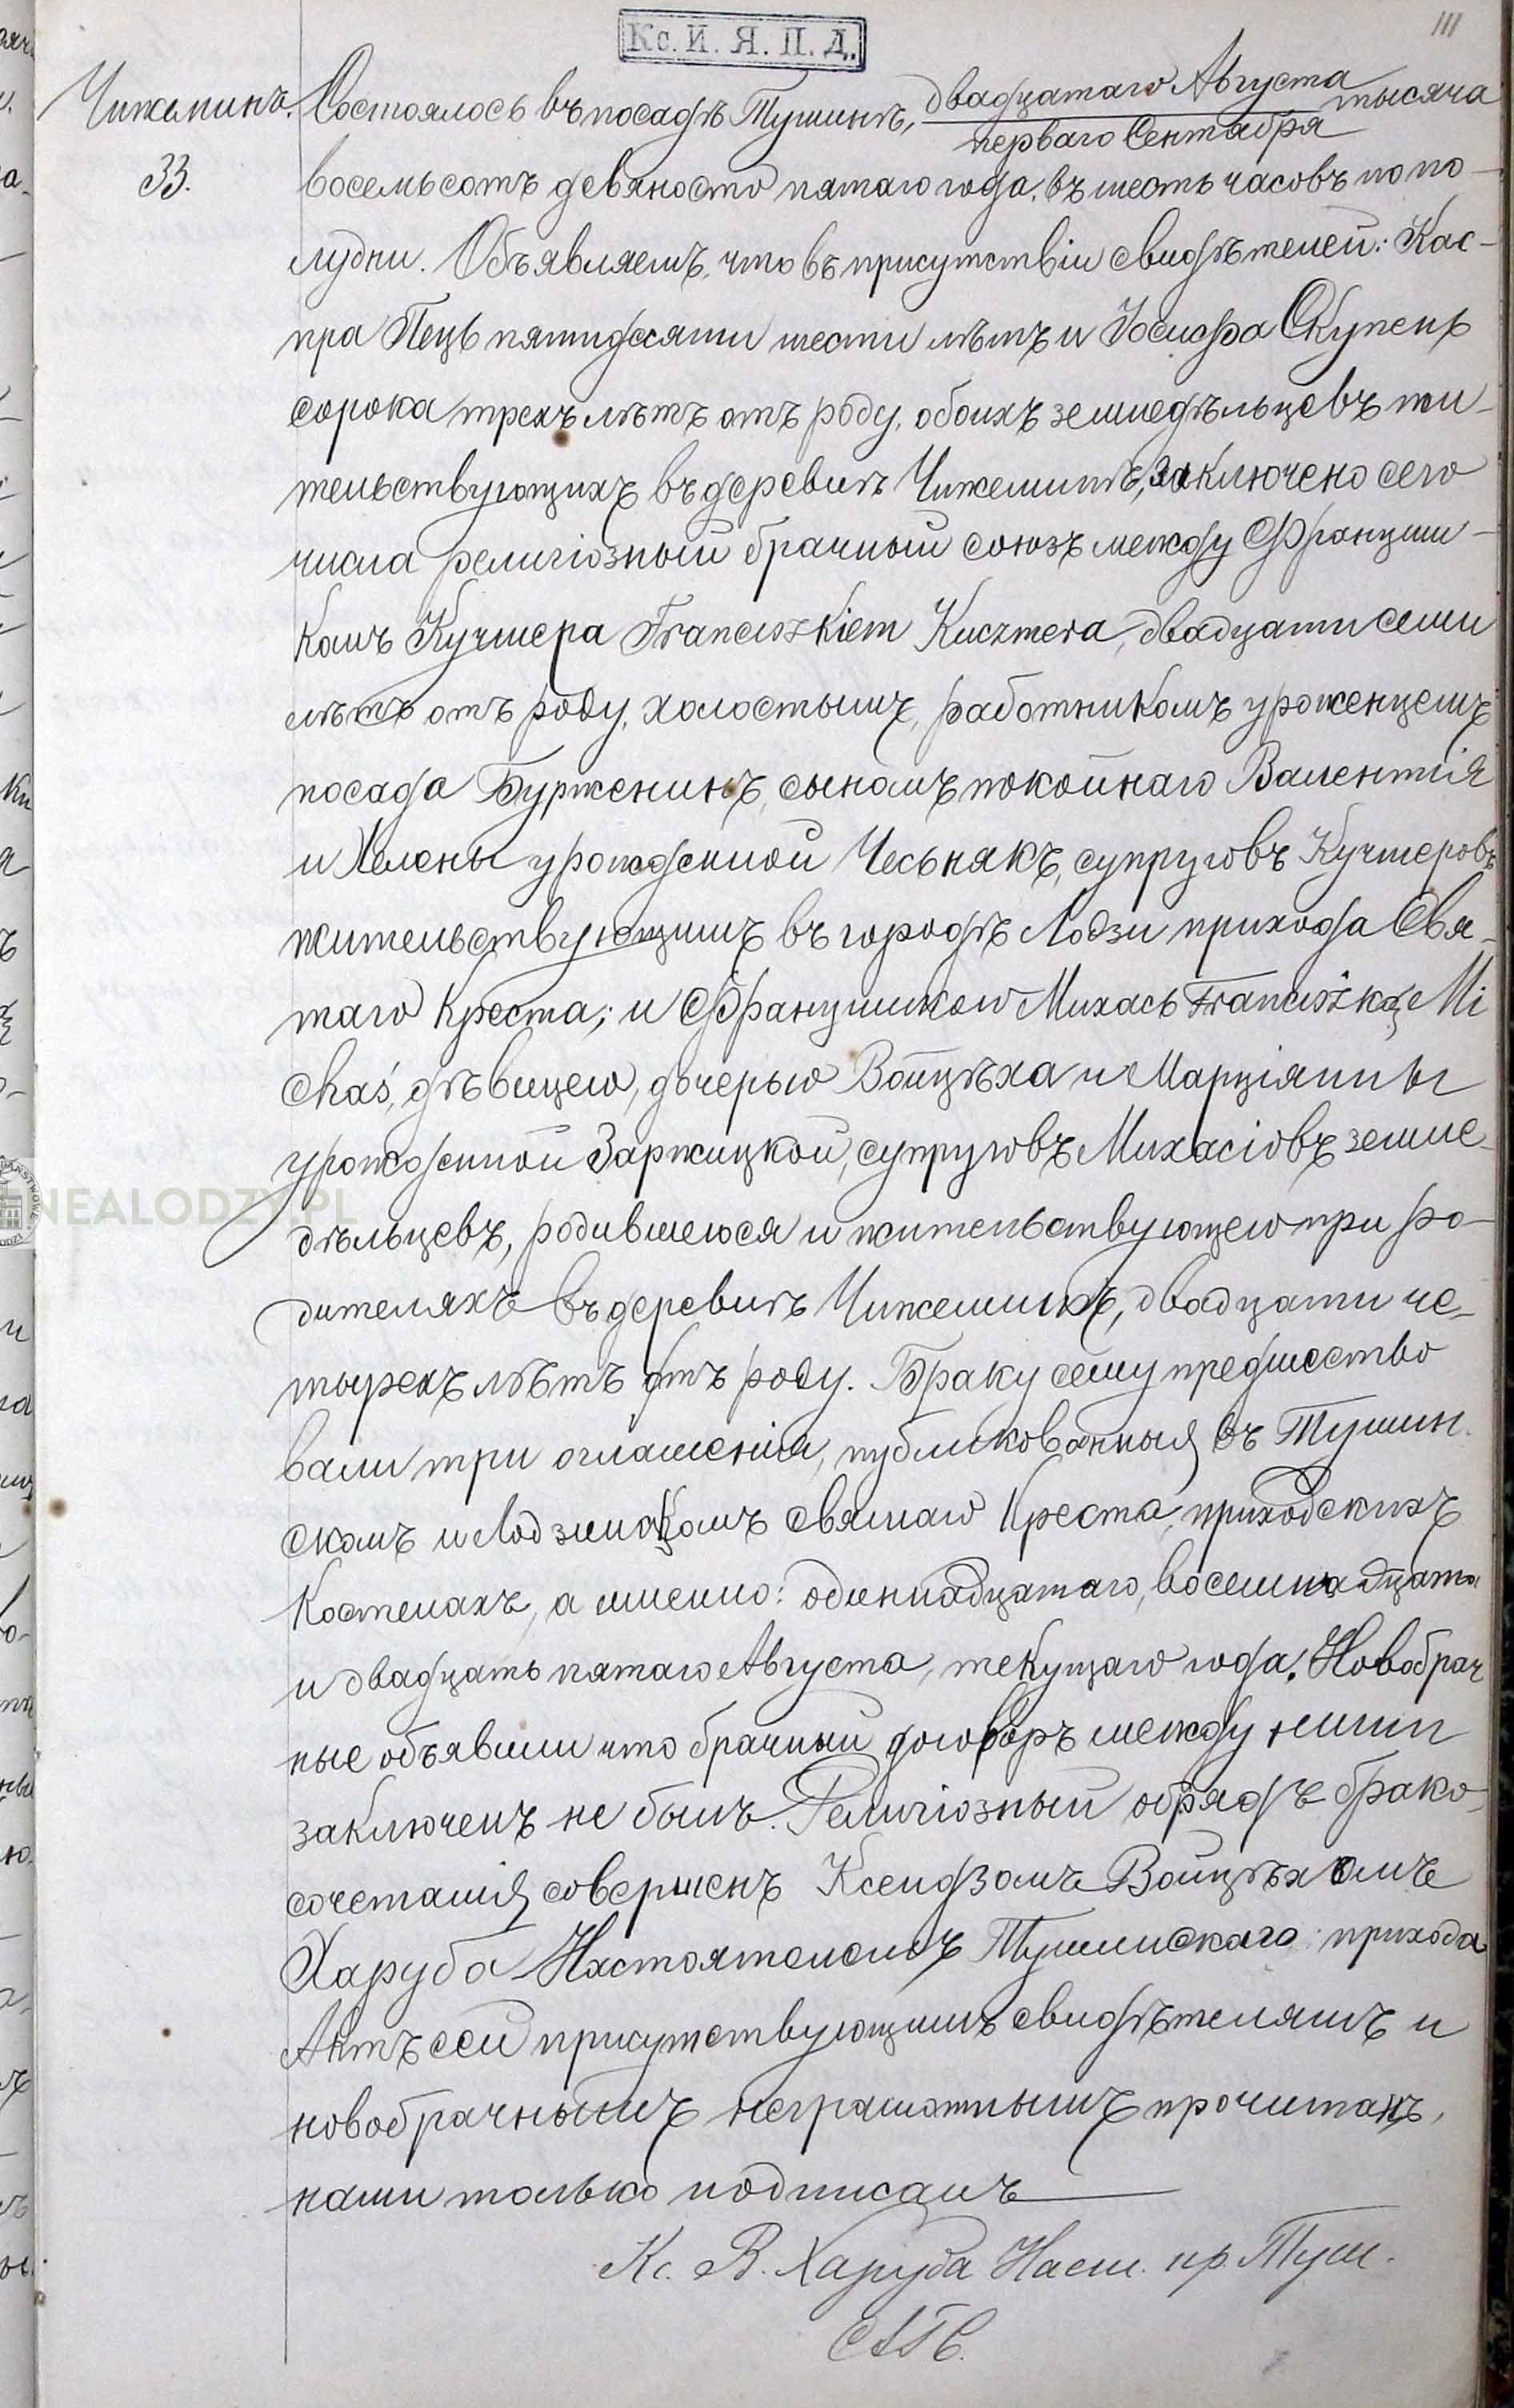 Кс. И. Я. П. Д.
111
Чижеминъ.
33.
Состоялось въ посадѣ Тушинѣ, двадцатаго Августа / перваго Сентября тысяча
восемьсотъ девяносто пятаго года, въ шесть часовъ по по-
лудни. Объявляемъ, что въ присутствіи свидѣтелей: Кас-
пра Пецъ пятидесяти шести лѣтъ и Іосифа Скупень
сорока трехъ лѣтъ отъ роду, обоихъ земледѣльцевъ жи-
тельствующихъ въ деревнѣ Чижеминѣ, заключено сего
числа религіозный брачный союзъ между Францишкомъ
комъ Кучмера Franciszkiem Kuczmera, двадцати семи
лѣтъ отъ роду, холостымъ, работникомъ уроженцемъ
посада Бурженинъ, сыномъ покойнаго Валентія
и Хелены урожденной Чесьнякъ, супруговъ Кучмеровъ
жительствующимъ въ городѣ Лодзи прихода Свя-
таго Креста; и Францишкою Михась Franciszką Mi
chaś, дѣвицею, дочерью Войцѣха и Марціянны
урожденной Заржицкой, супруговъ Михасіовъ земле-
дѣльцевъ, родившеюся и жительствующею при ро-
дителяхъ въ деревнѣ Чижеминѣ, двадцати че-
тырехъ лѣтъ отъ роду. Браку сему предшество
вали три оглашенія, публикованныя въ Тушин
скомъ и Лодзинскомъ святаго Креста приходскихъ
костелахъ, а именно: одиннадцатаго, восемнадцата
и двадцать пятаго Августа, текущаго года. Новобрач
ные объявили что брачный договоръ между ними
заключенъ не былъ. Религіозный обрядъ брако-
сочетанія совершенъ Ксендзомъ Войцѣхомъ
Харуба Настоятелемъ Тушинскаго прихода
Актъ сей присутствующимъ свидѣтелямъ и
новобрачнымъ неграмотнымъ прочитанъ,
нами только подписанъ
Кс. В. Харуба Наст. пр. Туш.
GENEALODZY.PL